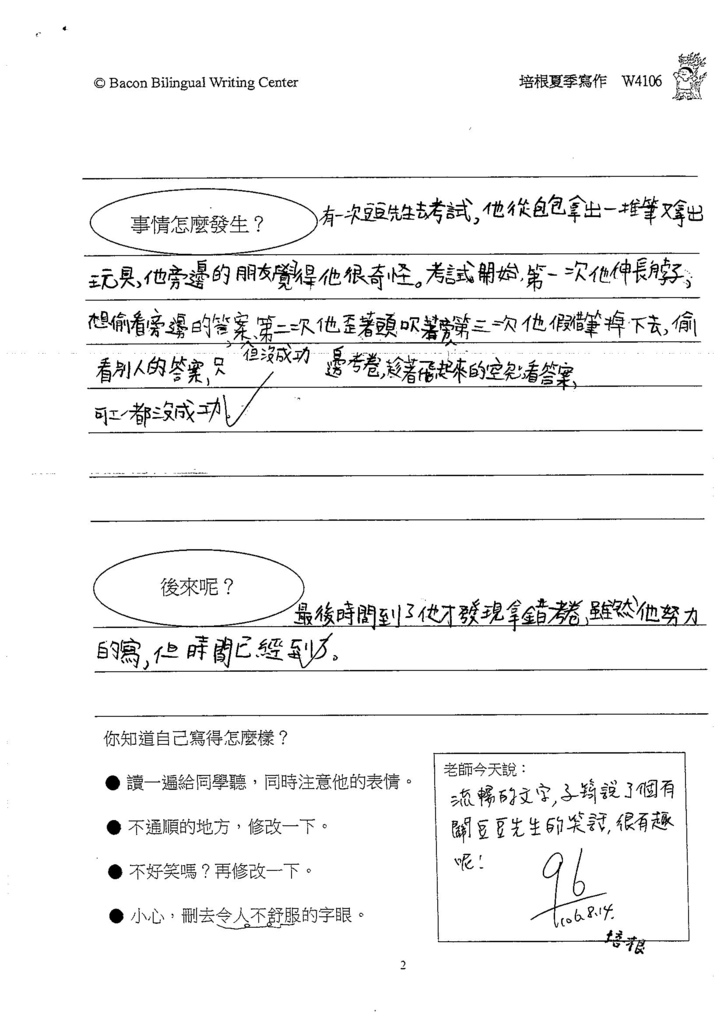 © Bacon Bilingual Writing Center
培根夏季寫作 W4106
事情怎麼發生？
有一次豆豆先生去考試,他從包拿出一堆筆又拿出
玩具,他旁邊的朋友覺得他很奇怪。考試開始,第一次他伸長脖子,
想偷看旁邊的答案,第二次他歪著頭吹著旁第三次他假借筆掉下去,偷
但沒成功
看別人的答案,只 邊考卷,趁著飛起來的空兒看答案,
可 都沒成功。
後來呢？
最後時間到了他才發現拿錯考卷,雖然他努力
的寫,但時間已經到了。
你知道自己寫得怎麼樣？
● 讀一遍給同學聽，同時注意他的表情。
● 不通順的地方，修改一下。
● 不好笑嗎？再修改一下。
● 小心，刪去令人不舒服的字眼。
老師今天說：
流暢的文字,子 說了個有
關豆豆先生的笑話,很有趣
呢!
96
106.8.14.
培根
2